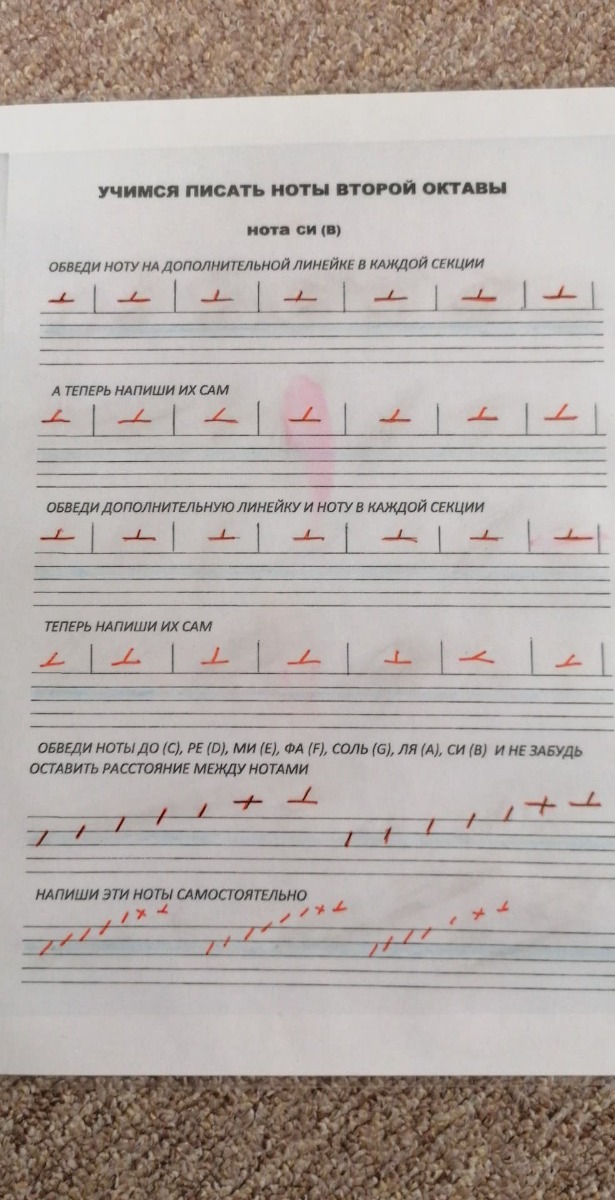 УЧИМСЯ ПИСАТЬ НОТЫ ВТОРОЙ ОКТАВЫ
НОТА СИ (В)
ОБВЕДИ НОТУ НА ДОПОЛНИТЕЛЬНОЙ ЛИНЕЙКЕ В КАЖДОЙ СЕКЦИИ
А ТЕПЕРЬ НАПИШИ ИХ САМ
ОБВЕДИ ДОПОЛНИТЕЛЬНУЮ ЛИНЕЙКУ И НОТУ В КАЖДОЙ СЕКЦИИ
ТЕПЕРЬ НАПИШИ ИХ САМ
ОБВЕДИ НОТЫ ДО (C), РЕ (D), МИ (E), ФА (F), СОЛЬ (G), ЛЯ (A), СИ (B) И НЕ ЗАБУДЬ
ОСТАВИТЬ РАССТОЯНИЕ МЕЖДУ НОТАМИ
НАПИШИ ЭТИ НОТЫ САМОСТОЯТЕЛЬНО